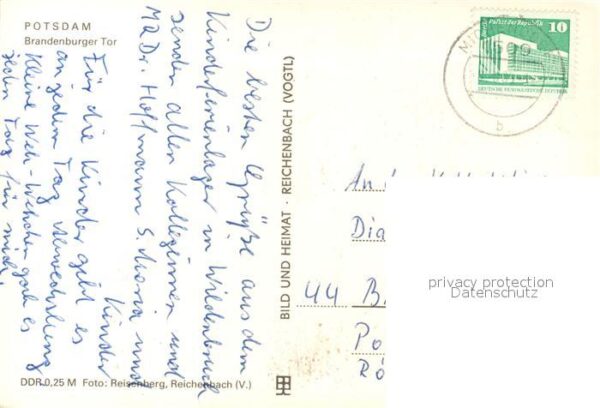 POTSDAM
Brandenburger Tor
Die besten Grüße aus dem
Kinderferienlager in Wildenbruch
senden allen Kolleginnen und
MR Dr. Hoffmann S. Maria und
Kinder
Für die Kinder gibt es
an jedem Tag Abwechslung
kleine Weh-Wehchen gab es
jeden Tag für mich.
DDR 0,25 M Foto: Reisenberg, Reichenbach (V.)
BILD UND HEIMAT · REICHENBACH (VOGTL)
Palast der Republik
10
DEUTSCHE DEMOKRATISCHE REPUBLIK
b
An
Dia
44 B
Po
Rö
privacy protection
Datenschutz